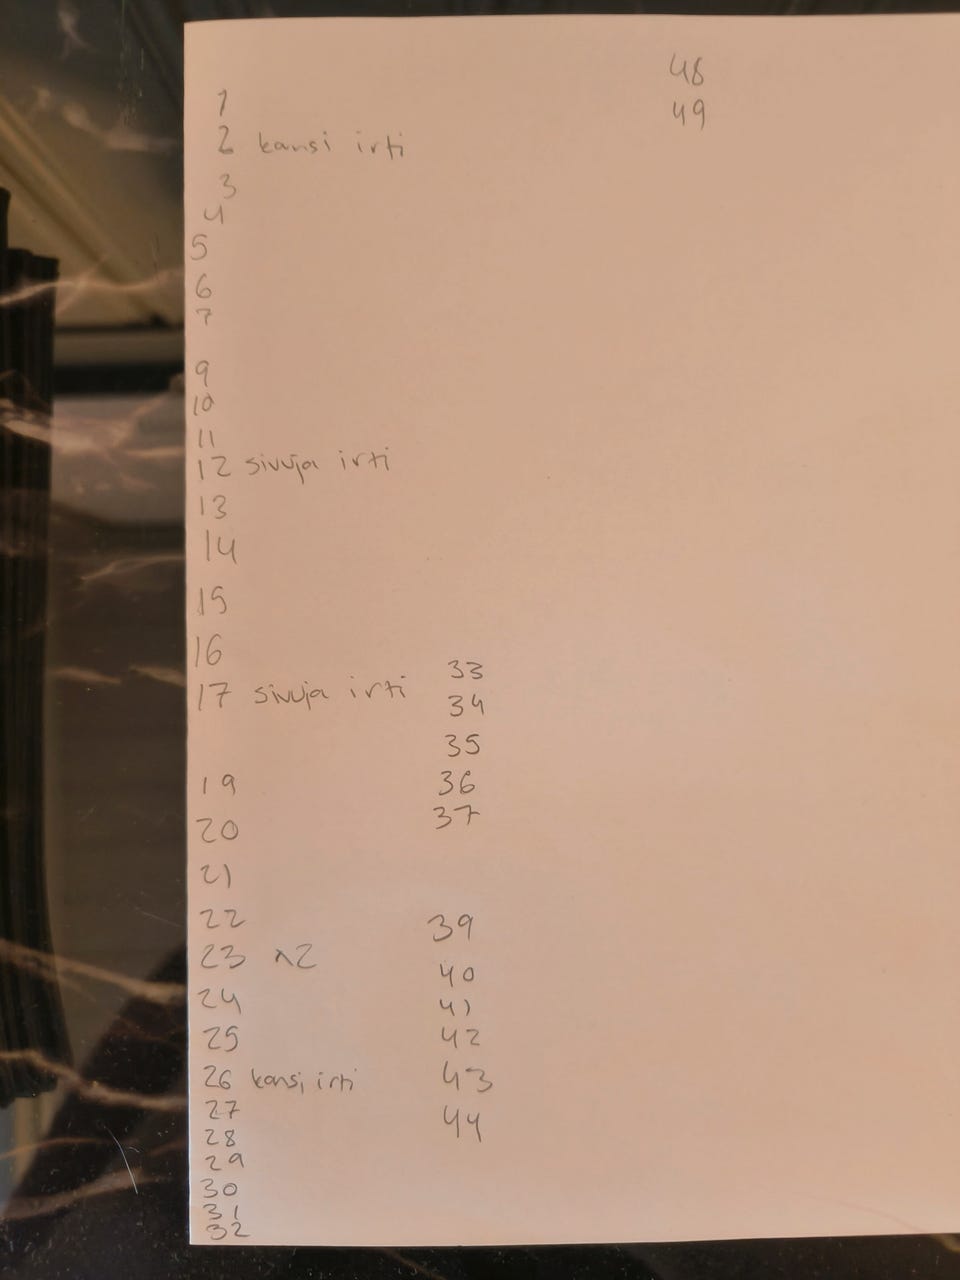 1
2 kansi irti
3
4
5
6
7
9
10
11
12 sivuja irti
13
14
15
16
17 sivuja irti
19
20
21
22
23 x2
24
25
26 kansi irti
27
28
29
30
31
32
33
34
35
36
37
39
40
41
42
43
44
48
49